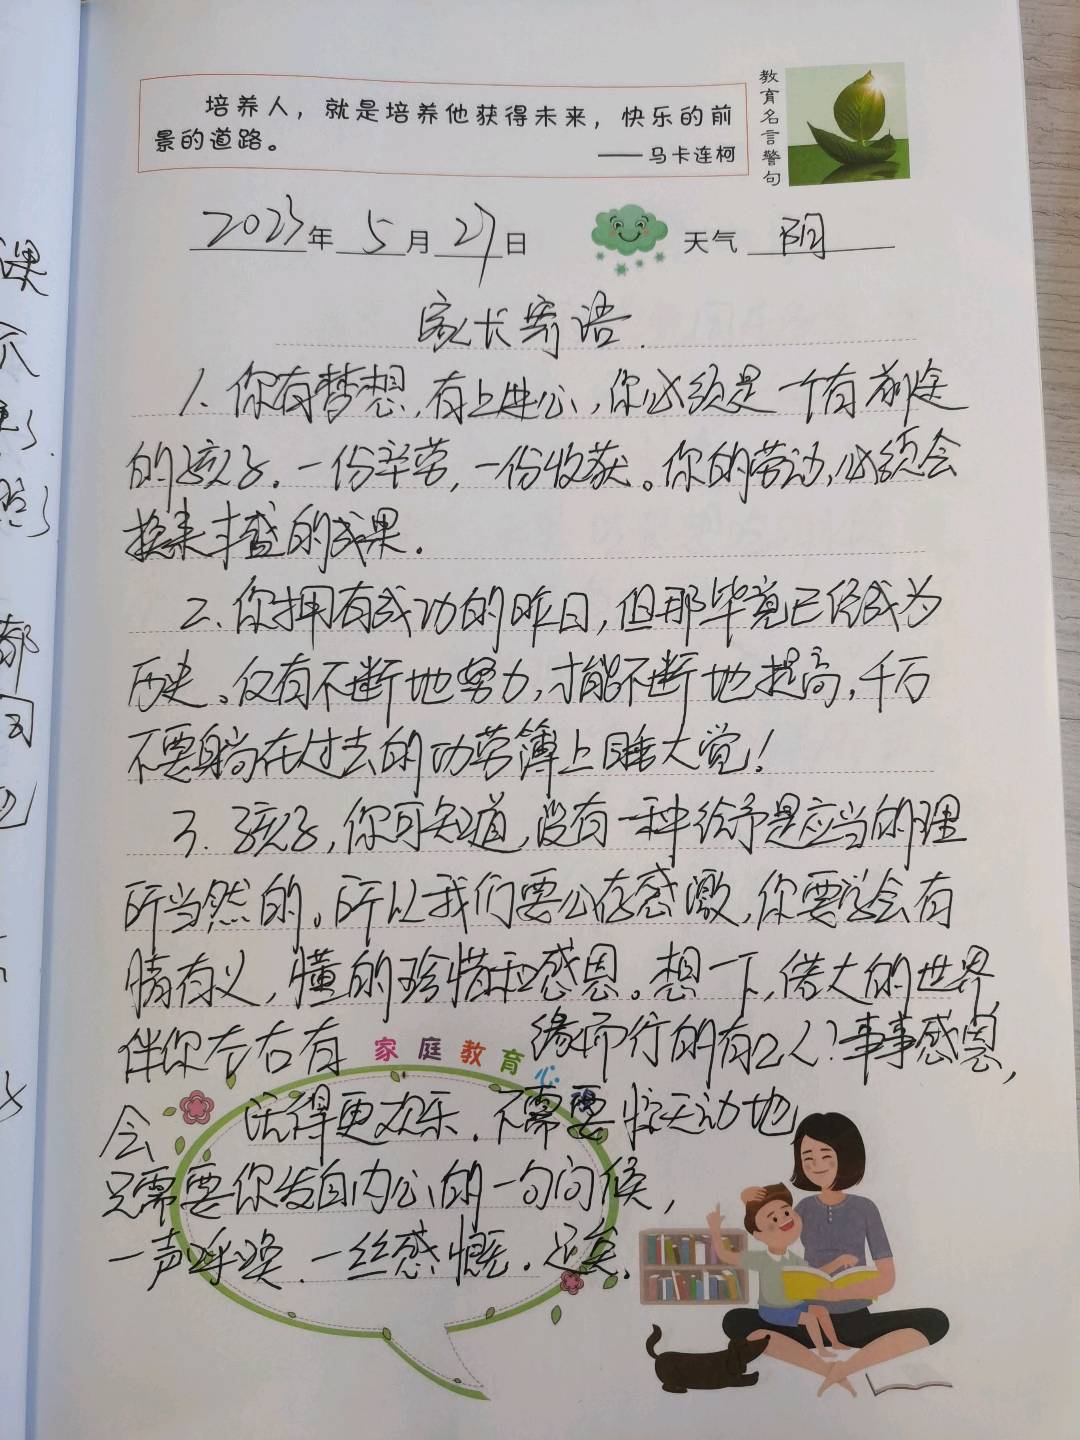 培养人，就是培养他获得未来，快乐的前
景的道路。
——马卡连柯
教育名言警句
2023年 5月 27日 天气 阴
家长寄语.
1. 你有梦想,有上进心,你必须是一个有前途
的孩子.一份辛劳,一份收获。你的劳动,必须会
换来丰盛的成果.
2. 你拥有成功的昨日,但那毕竟已经成为
历史。仅有不断地努力,才能不断地提高,千万
不要躺在过去的功劳簿上睡大觉!
3. 孩子,你可知道,没有一种给予是应当的理
所当然的。所以我们要心存感激,你要学会有
情有义,懂的珍惜和感恩。想一下,偌大的世界,
伴你左右有 缘而行的有几人?事事感恩,
家庭教育心
会 活得更欢乐.不需要惊天动地
只需要你发自内心的一句问候,
一声呼唤.一丝感慨.足矣.